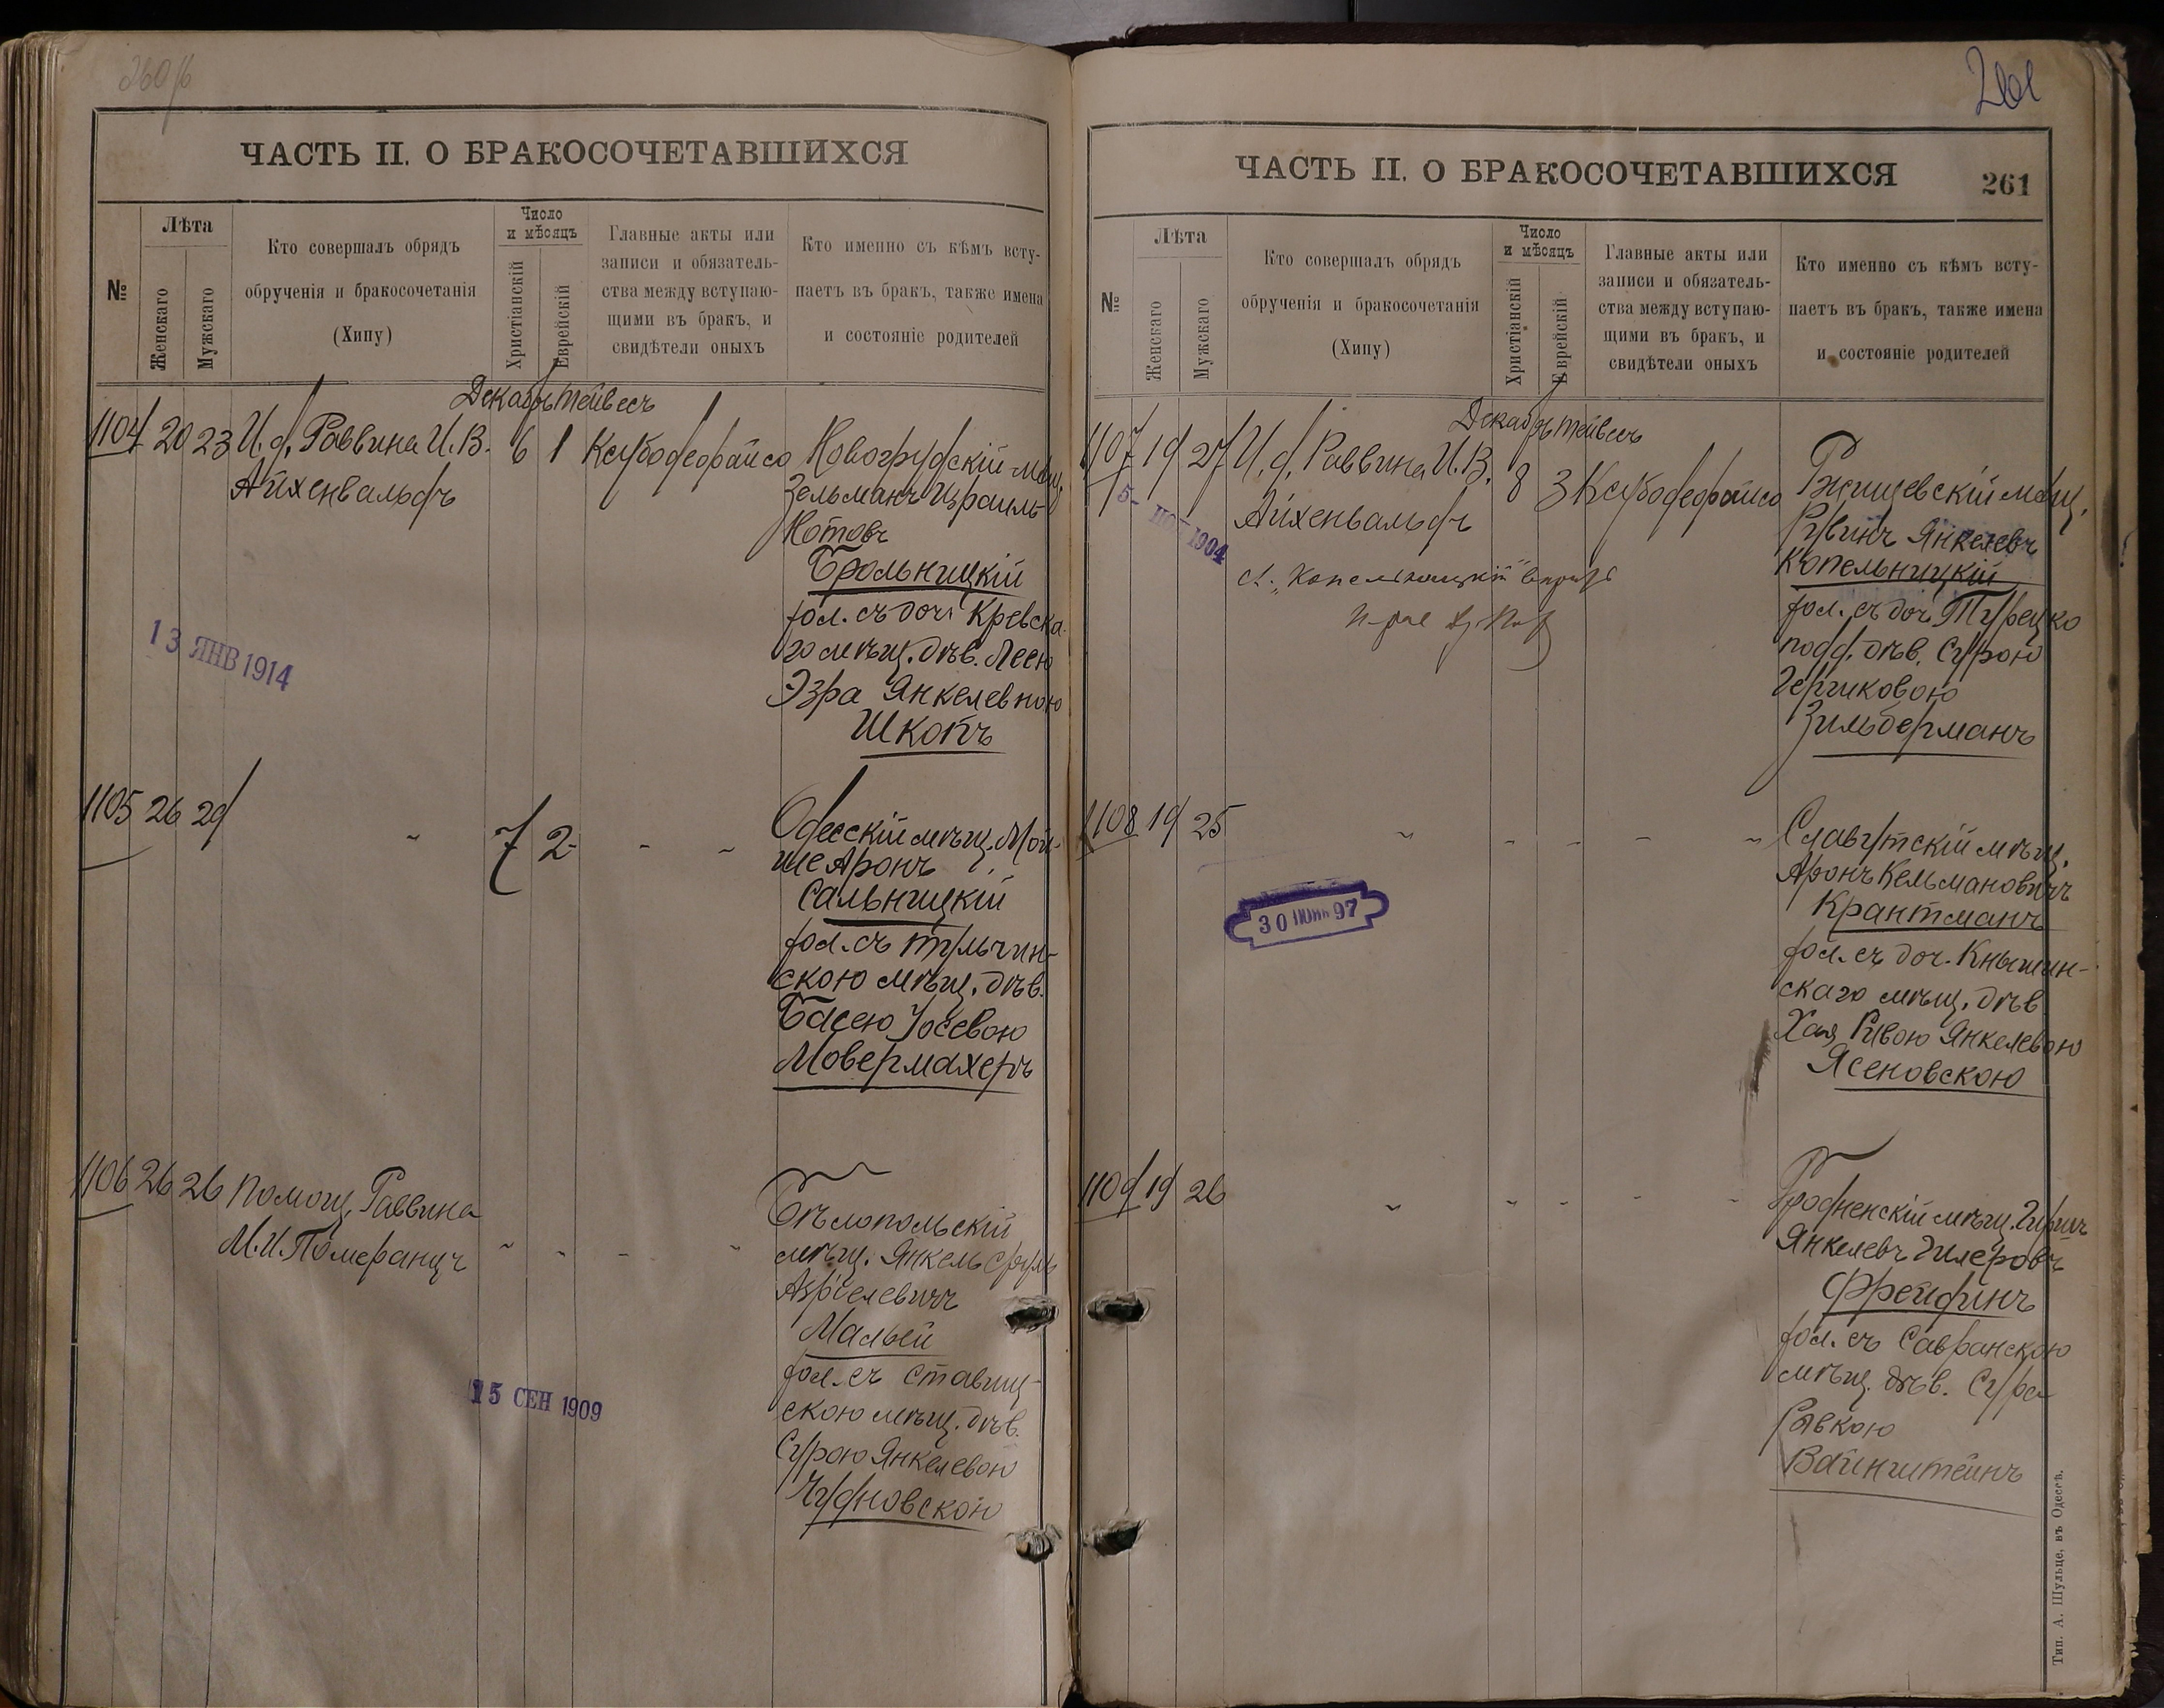 260 б
ЧАСТЬ II. О БРАКОСОЧЕТАВШИХСЯ
№
Лѣта
Женскаго
Мужскаго
Кто совершалъ обрядъ
обрученія и бракосочетанія
(Хипу)
Число
и мѣсяцъ
Христіанскій
Еврейскій
Главные акты или
записи и обязатель-
ства между вступаю-
щими въ бракъ, и
свидѣтели оныхъ
Кто именно съ кѣмъ всту-
паетъ въ бракъ, также имена
и состояніе родителей
Декабрь Тейвесъ
1104 20 23 И. д. Раввина И. В. 6 1
Айхенвальдъ
Зельманъ Израиль
Нотовъ
хол. съ доч. Кревска-
го мѣщ. дѣв. Леею
Эзра Янкелевною
Шкопъ
13 ЯНВ 1914
1105 26 29 " 7 2 - - -
Одесскій мѣщ. Мой-
ше Аронъ
Сальницкій
хол. съ Тульчин-
скою мѣщ. дѣв.
Басею Іосевою
Мовермахеръ
1106 26 26 Помощ. Раввина
М. И. Померанцъ
Бѣлопольскій
мѣщ. Янкель Сруль
Малый
хол. съ Ставищ-
скою мѣщ. дѣв.
Сурою Янкелевою
Чудновскою
15 СЕН 1909
261
ЧАСТЬ II. О БРАКОСОЧЕТАВШИХСЯ
261
№
Лѣта
Женскаго
Мужскаго
Кто совершалъ обрядъ
обрученія и бракосочетанія
(Хипу)
Число
и мѣсяцъ
Христіанскій
Еврейскій
Главные акты или
записи и обязатель-
ства между вступаю-
щими въ бракъ, и
свидѣтели оныхъ
Кто именно съ кѣмъ всту-
паетъ въ бракъ, также имена
и состояніе родителей
Декабрь Тейвесъ
1107 19 27 И. д. Раввина И. В. 8 3
Айхенвальдъ
1904
Ржищевскій мѣщ.
Рувинъ Янкелевъ
Копельницкій
хол. съ доч. Турецко
подд. дѣв. Сурою
Гершковою
Зильберманъ
1108 19 25 " - - - "
Славутскій мѣщ.
Аронъ Кельмановичъ
Крантманъ
хол. съ доч. Кнышин-
скаго мѣщ. дѣв.
Хая Ривою Янкелевою
Ясеновскою
30 ИЮНЬ 97
1109 19 26 " " - - -
Гродненскій мѣщ. Гиршъ
Янкелевъ Гилеровъ
Фрейдинъ
хол. съ Савранскою
мѣщ. дѣв. Сура
Ривкою
Вайнштейнъ
Тип. А. Шульце, въ Одессѣ.